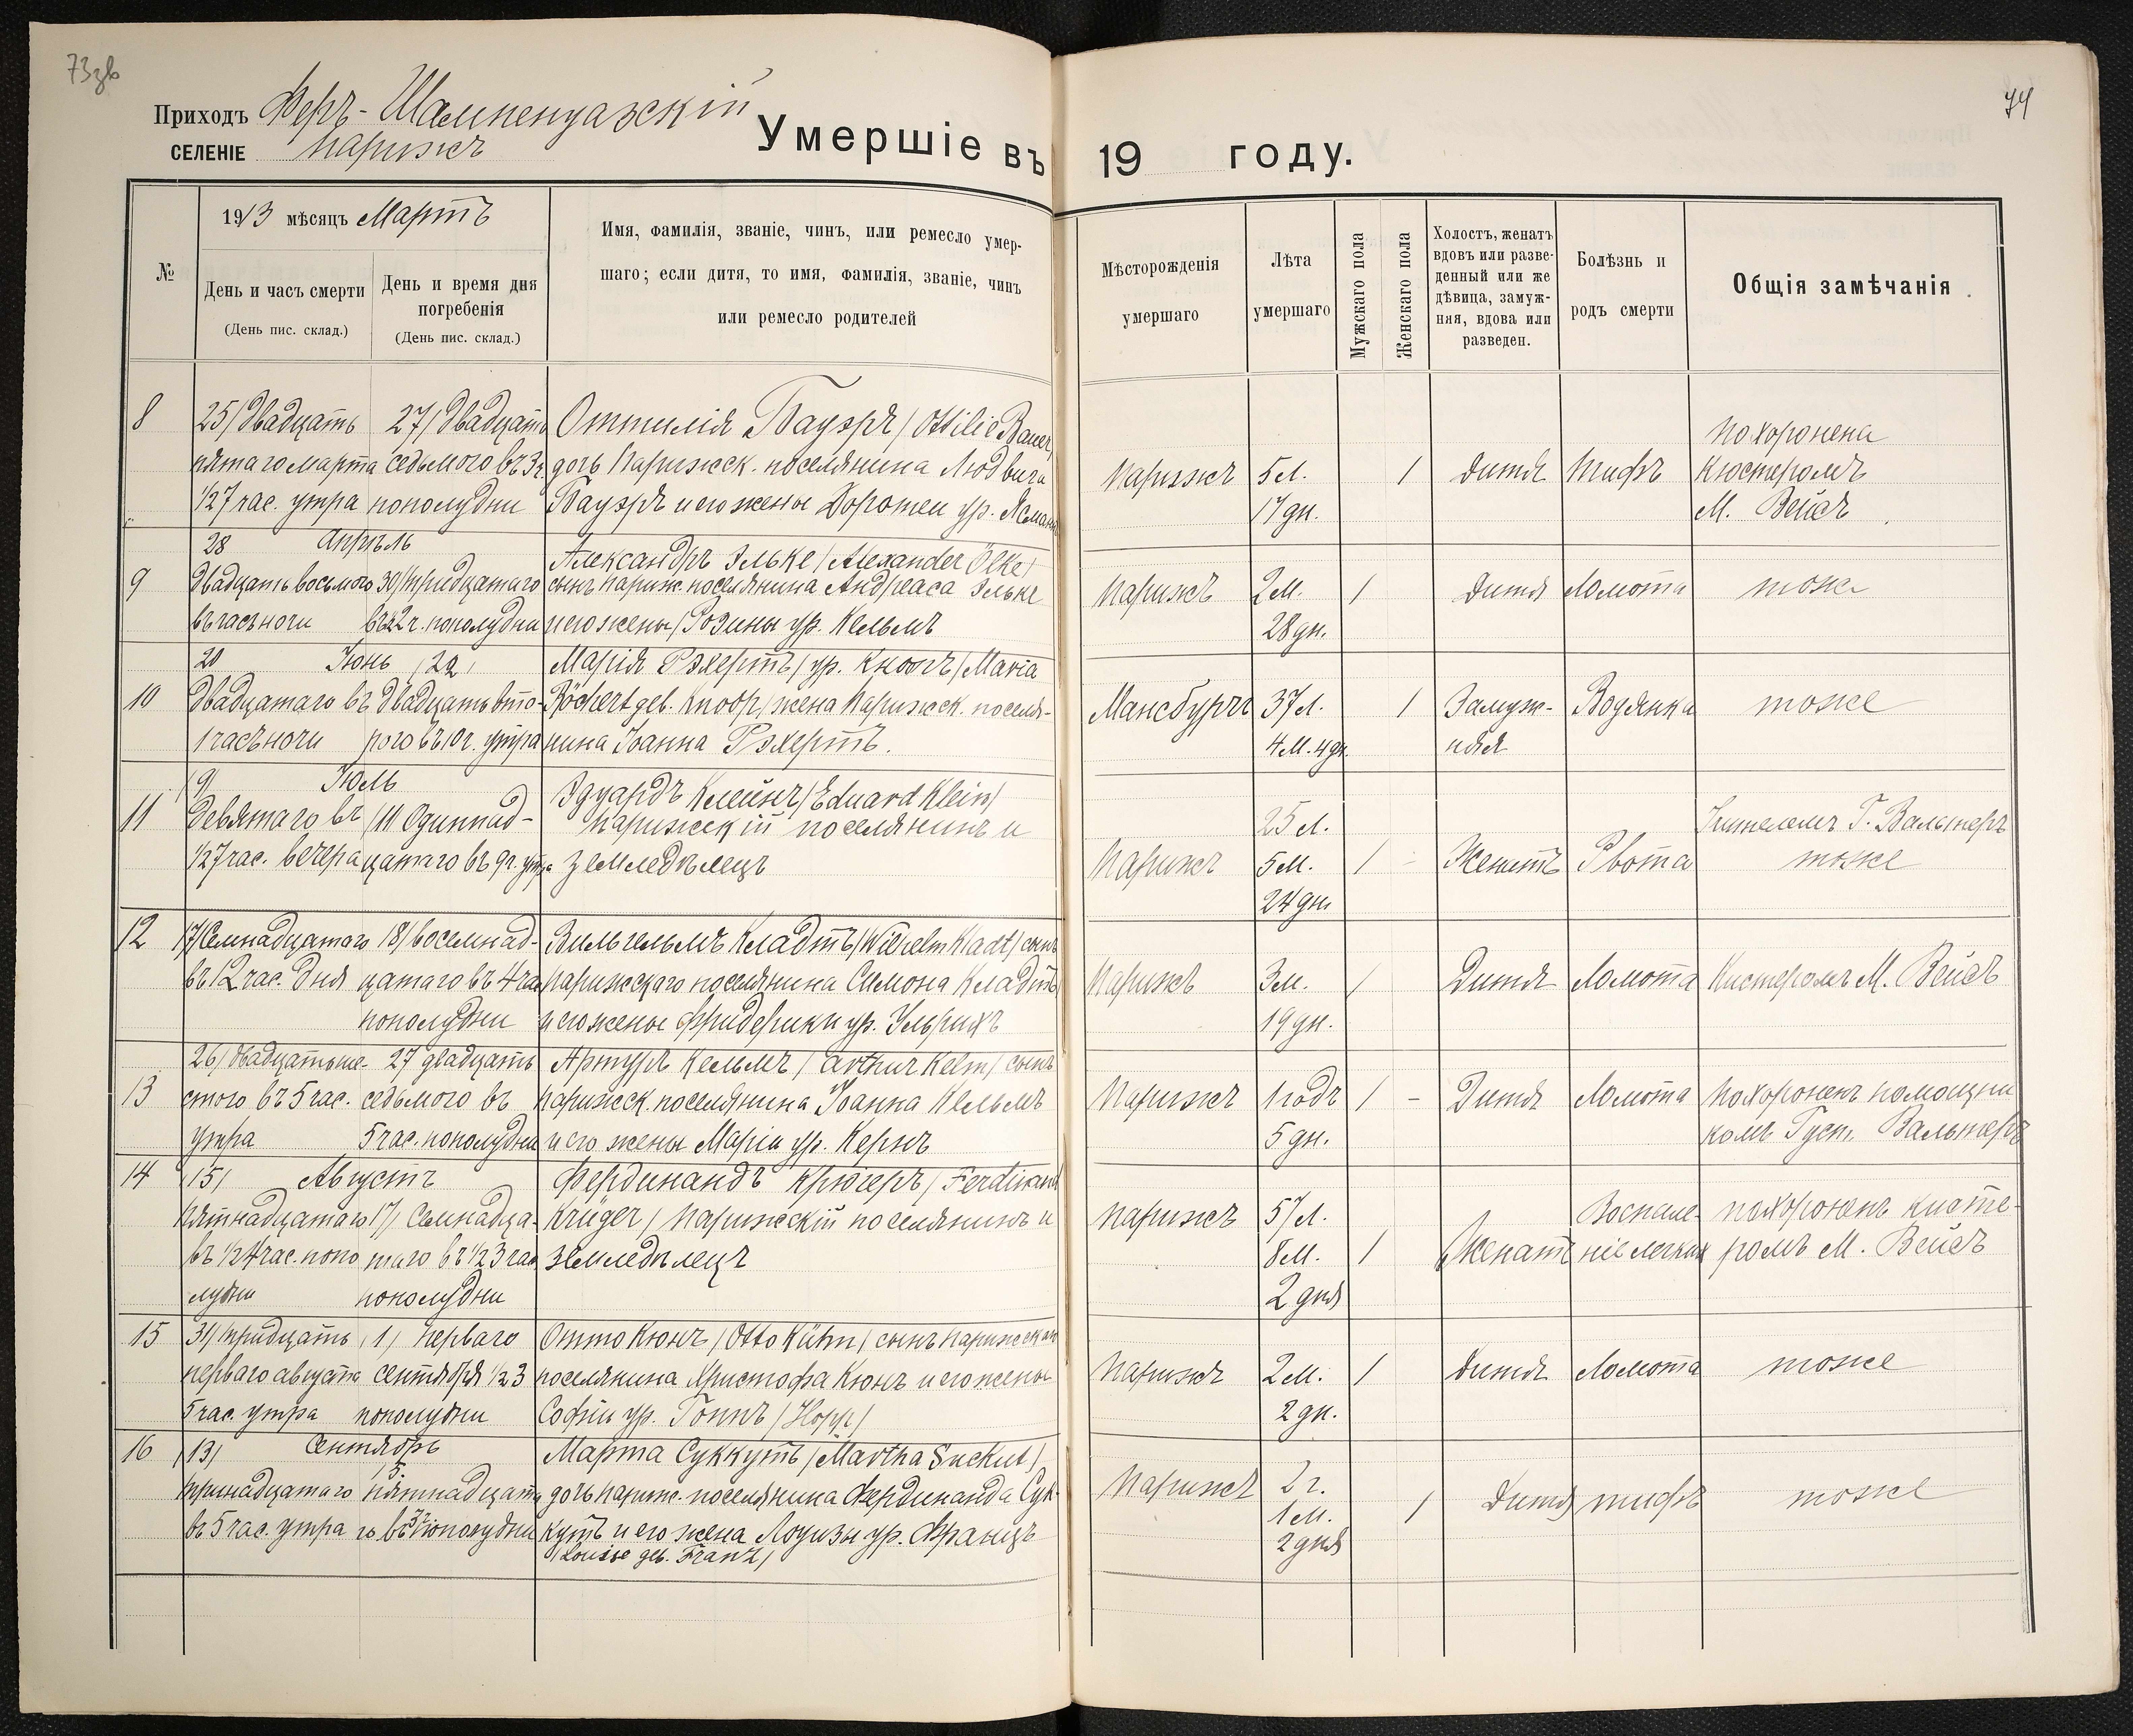 73зв
74
Приходъ Феръ-Шампенуазскій
СЕЛЕНІЕ Парижъ
Умершіе въ 19 году.
№
1913 мѣсяцъ Мартъ
День и часъ смерти
(День пис. склад.)
День и время дня
погребенія
(День пис. склад.)
Имя, фамилія, званіе, чинъ, или ремесло умер-
шаго; если дитя, то имя, фамилія, званіе, чинъ
или ремесло родителей
Мѣсторожденія
умершаго
Лѣта
умершаго
Мужскаго пола
Женскаго пола
Холостъ, женатъ
вдовъ или разве-
денный или же
дѣвица, замуж-
няя, вдова или
разведен.
Болѣзнь и
родъ смерти
Общія замѣчанія
8
25/двадцать
пятаго марта
½7 час. утра
27/двадцать
седьмого въ 3 ч.
пополудни
Оттилія Бауэръ/Ottilie Bauer/
дочь Парижск. поселянина Людвига
Бауэръ и его жены Доротеи ур.
Парижъ
5 л.
17 дн.
1
дитя
Тифъ
Похоронена
Кюстеромъ
М. Вейсъ
28 Апрѣль
9
двадцать восьмого
въ часъ ночи
30/тридцатаго
въ 2 ч. пополудни
Александръ Эльке/Alexander Ölke/
сынъ париж. поселянина Андреаса Эльке
и его жены/Розины ур. Кельмъ
Парижъ
2 м.
28 дн.
1
дитя
Ломота
тоже
20 Іюнь /22/
10
двадцатаго въ
1 часъ ночи
двадцать вто-
рого въ 10 ч. утра
Марія Рэхертъ/ур. Кноопъ/Maria
Röchert geb. Knoop/жена Парижск. поселя-
нина Іоанна Рэхертъ.
Мансбургъ
37 л.
4 м. 4 дн.
1
Замуж-
няя
Водянка
тоже
/9/ Іюль
11
девятаго въ
½7 час. вечера
/11 Одиннад-
цатаго въ 9 ч. утра
Эдуардъ Клейнъ/Eduard Klein/
парижскій поселянинъ и
земледѣлецъ
Парижъ
25 л.
5 м.
24 дн
1 -
Женатъ
Рвота
Учителемъ Г. Вальтеръ
тоже
12
17/Семнадцатаго
въ 12 час. дня
18/восемнад-
цатаго въ 4 час
пополудни
Вильгельмъ Кладтъ/Wilhelm Kladt/сынъ
парижскаго поселянина Симона Кладтъ
и его жены Фридерики ур. Ульрихъ
Парижъ
3 м.
19 дн.
1
Дитя
Ломота
Кистеромъ М. Вейсъ
13
26/двадцатьше-
стого въ 5 час.
утра
27 двадцать
седьмого въ
5 час. пополудни
Артуръ Кельмъ/Arthur Kelm/сынъ
парижск. поселянина Іоанна Кельмъ
и его жены Маріи ур. Кернъ
Парижъ
1 годъ
5 дн.
1 -
Дитя
Ломота
Похороненъ помощни
комъ Густ. Вальтеръ
14
/15/ Августъ
пятнадцатаго
въ ½4 час. попо
лудни
17/Семнадца-
таго въ ½3 час
пополудни
Фердинандъ Крюгеръ/Ferdinand
Krüger/парижскій поселянинъ и
земледѣлецъ
Парижъ
57 л.
8 м.
2 дня
1
Женатъ
Воспале-
ніе легких
похороненъ кисте-
ромъ М. Вейсъ
15
31/тридцать
перваго августа
5 час. утра
/1/ перваго
сентября ½3
пополудни
Отто Кюнъ/Otto Kühn/сынъ парижскаго
поселянина Христофа Кюнъ и его жены
Софіи ур. Гоппъ/Hopp/
Парижъ
2 м.
2 дн.
1
дитя
Ломота
тоже
16
/13/ Сентябрь
тринадцатаго
въ 5 час. утра
15.
пятнадцата
го въ 3 ч. пополудни
Марта Суккутъ/Martha Suckut/
дочь париж. поселянина Фердинанда Сук-
кутъ и его жена Лоуизы ур. Францъ
/Louise geb. Franz/
Парижъ
2 г.
1 м.
2 дня
1
Дитя
тифъ
тоже